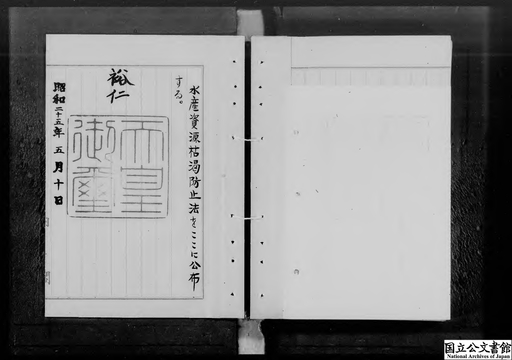 水産資源枯渇防止法をここに公布
する。
裕仁
天皇
御璽
昭和二十五年五月十日
国立公文書館
National Archives of Japan